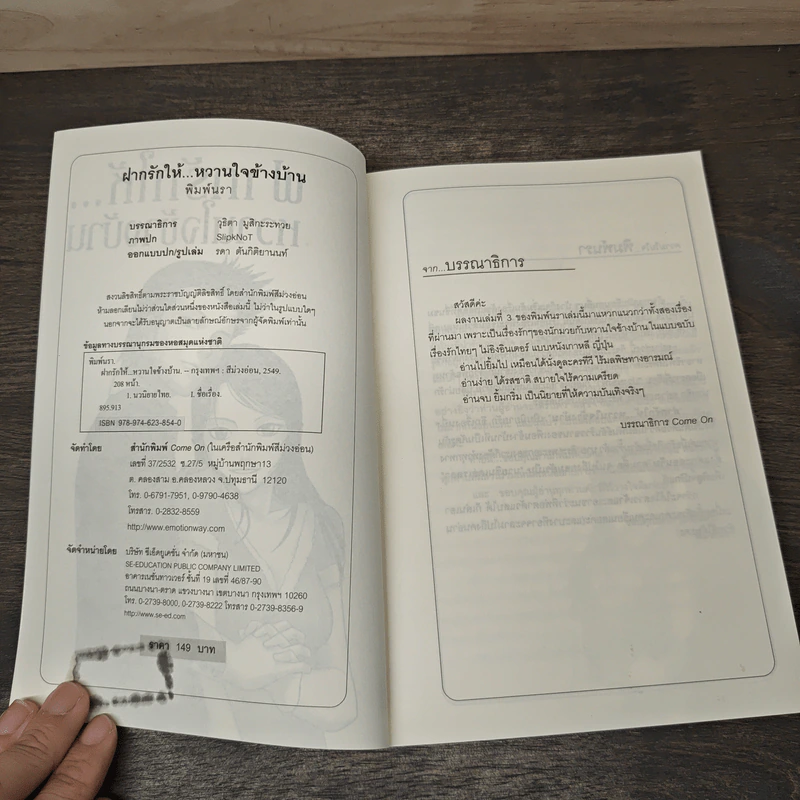 ฝากรักให้...หวานใจข้างบ้าน
พิมพ์นรา
บรรณาธิการ วุธิตา มุสิกะระทวย
ภาพปก SlipkNoT
ออกแบบปก/รูปเล่ม รดา ตันกิติยานนท์
สงวนลิขสิทธิ์ตามพระราชบัญญัติลิขสิทธิ์ โดยสำนักพิมพ์สีม่วงอ่อน
ห้ามลอกเลียนไม่ว่าส่วนใดส่วนหนึ่งของหนังสือเล่มนี้ ไม่ว่าในรูปแบบใดๆ
นอกจากจะได้รับอนุญาตเป็นลายลักษณ์อักษรจากผู้จัดพิมพ์เท่านั้น
ข้อมูลทางบรรณานุกรมของหอสมุดแห่งชาติ
พิมพ์นรา.
ฝากรักให้...หวานใจข้างบ้าน. -- กรุงเทพฯ : สีม่วงอ่อน, 2549.
208 หน้า.
1. นวนิยายไทย. I. ชื่อเรื่อง.
895.913
ISBN 978-974-623-854-0
จัดทำโดย สำนักพิมพ์ Come On (ในเครือสำนักพิมพ์สีม่วงอ่อน)
เลขที่ 37/2532 ซ.27/5 หมู่บ้านพฤกษา13
ต. คลองสาม อ.คลองหลวง จ.ปทุมธานี 12120
โทร. 0-6791-7951, 0-9790-4638
โทรสาร. 0-2832-8559
http://www.emotionway.com
จัดจำหน่ายโดย บริษัท ซีเอ็ดยูเคชั่น จำกัด (มหาชน)
SE-EDUCATION PUBLIC COMPANY LIMITED
อาคารเนชั่นทาวเวอร์ ชั้นที่ 19 เลขที่ 46/87-90
ถนนบางนา-ตราด แขวงบางนา เขตบางนา กรุงเทพฯ 10260
โทร. 0-2739-8000, 0-2739-8222 โทรสาร 0-2739-8356-9
http://www.se-ed.com
ราคา 149 บาท
จาก...บรรณาธิการ
สวัสดีค่ะ
ผลงานเล่มที่ 3 ของพิมพ์นราเล่มนี้มาแหวกแนวกว่าทั้งสองเรื่อง
ที่ผ่านมา เพราะเป็นเรื่องรักๆของนักมวยกับหวานใจข้างบ้าน ในแบบฉบับ
เรื่องรักไทยๆ ไม่อิงอินเตอร์ แบบหนังเกาหลี ญี่ปุ่น
อ่านไปยิ้มไป เหมือนได้นั่งดูละครทีวี ไร้มลพิษทางอารมณ์
อ่านง่าย ได้รสชาติ สบายใจไร้ความเครียด
อ่านจบ ยิ้มกริ่ม เป็นนิยายที่ให้ความบันเทิงจริงๆ
บรรณาธิการ Come On